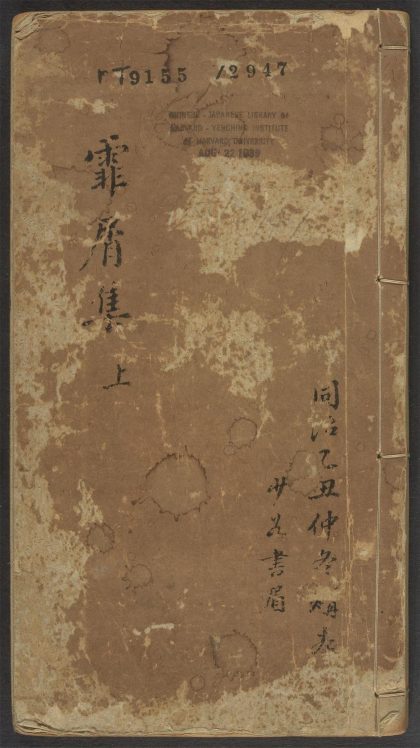 T9155 /2947
CHINESE - JAPANESE LIBRARY OF
HARVARD - YENCHING INSTITUTE
AT HARVARD UNIVERSITY
AUG 22 1939
同治乙丑仲冬
書眉
霏屑集
上